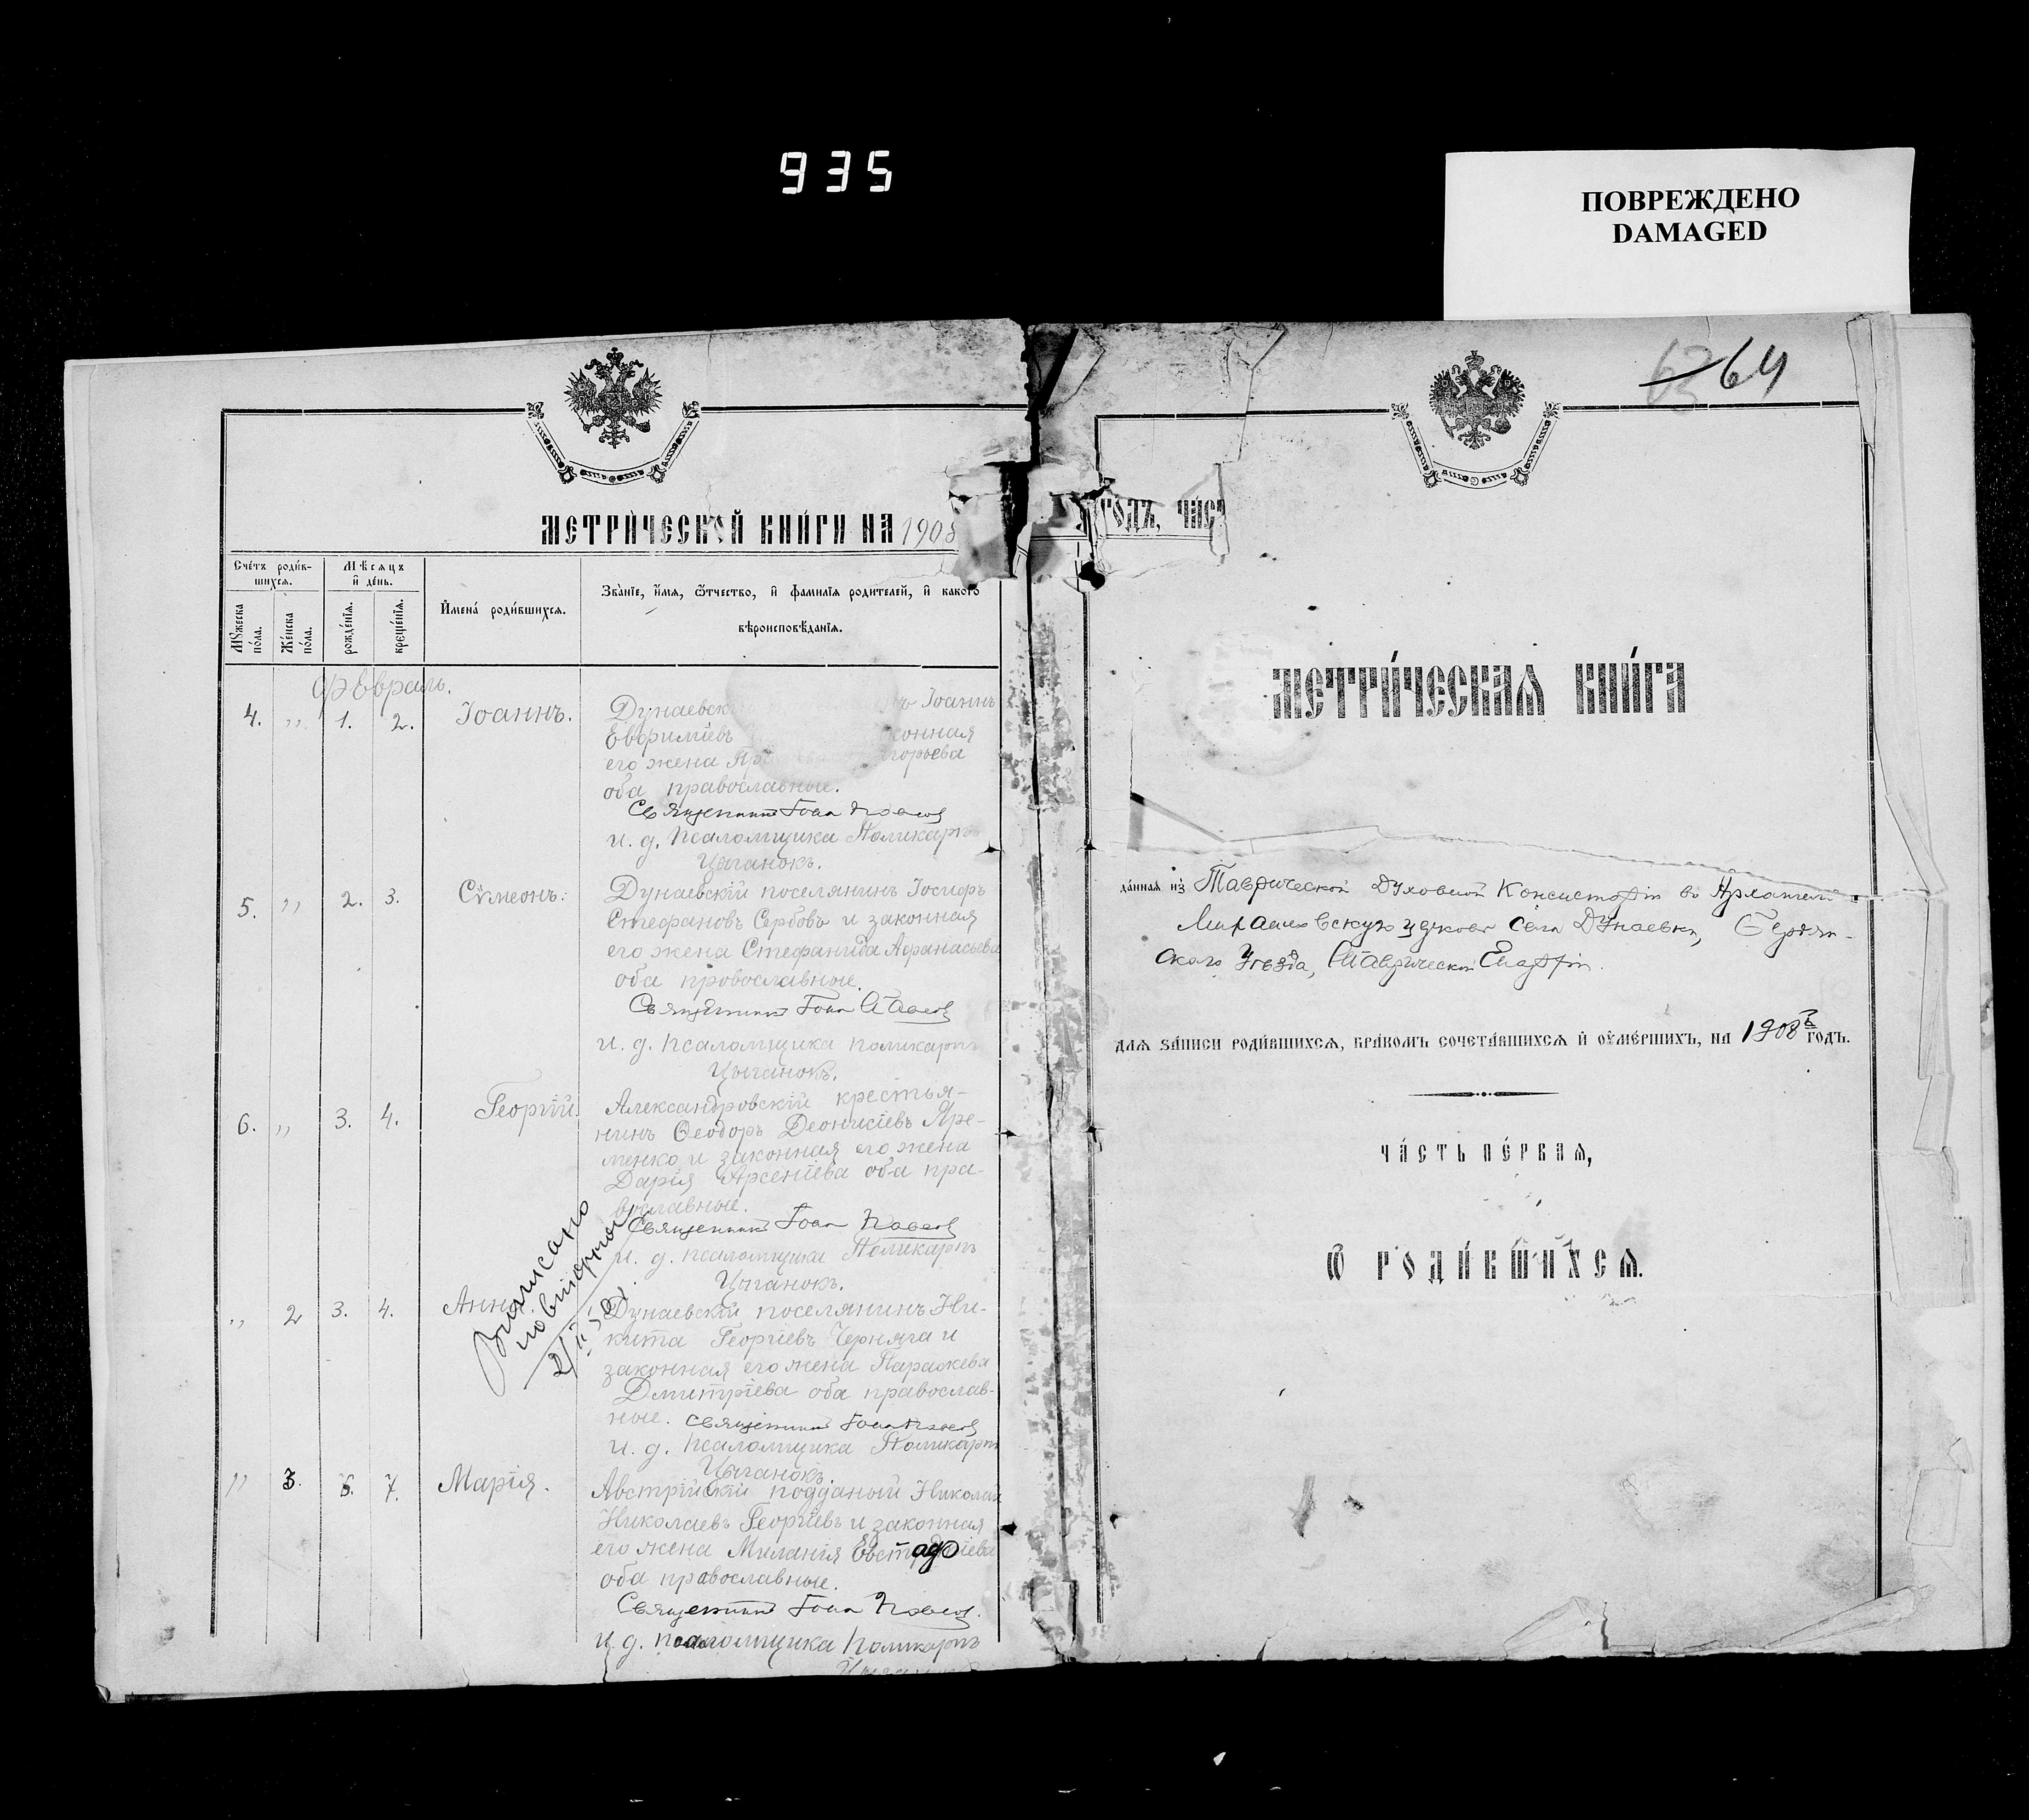 935
ПОВРЕЖДЕНО
DAMAGED
64
МЕТРИ́ЧЕСКОЙ КНИ́ГИ НА 1908
Сче́тъ роди́в-
шихсѧ.
Мѣсѧцъ
и҆ де́нь.
Мꙋжеска по́ла.
Же́нска по́ла.
рожде́нїѧ.
креще́нїѧ.
И҆мена̀ роди́вшихсѧ.
Зва́нїе, и҆́мѧ, ѻ҆́тчество, и҆ фамилїѧ родителей, и҆ какогѡ
вѣроисповѣ́данїѧ.
Февраль.
4. " 1. 2. Іоаннъ.
Іоаннъ
Евфиміевъ
его жена
оба православные.
Священникъ Іоан
и. д. псаломщика Поликарпъ
Цыганокъ.
5. " 2. 3. Сѵмеонъ.
Дунаевскій поселянинъ Іосифъ
Стефановъ Сербовъ и законная
его жена Стефанида Афанасьева
оба провославные.
Священникъ Іоан
и. д. псаломщика Поликарпъ
Цыганокъ.
6. " 3. 4. Георгій.
Александровскій крестья-
нинъ Ѳеодоръ Деонисіевъ Яре-
менко и законная его жена
Дарія Арсеніева оба пра-
вославные.
Священникъ Іоан
и. д. псаломщика Поликарпъ
Цыганокъ.
" 2 3. 4. Анна.
Дунаевскій поселянинъ Ни-
кита Георгіевъ Черняга и
законная его жена Параскева
Дмитріева оба православ-
ные. Священникъ Іоан
и. д. псаломщика Поликарпъ
Цыганокъ.
Выписано
повторно
" 3. 6. 7. Марія.
Австрійскій подданый Николай
Николаевъ Георгіевъ и законная
его жена Миланія
оба православные.
Священникъ Іоан
и. д. псаломщика Поликарпъ
Цыганокъ
ГОДЪ, ЧАС
МЕТРИ́ЧЕСКАѦ КНИ́ГА
да́ннаѧ и҆з̾ Таврической Духовной Консисторіи во Архангело-
Михаиловскую церковь села Дунаевки, Бердян-
скаго Уѣзда, Таврической Епархіи.
длѧ за́писи роди́вшихсѧ, бра́комъ сочета́вшихсѧ и҆ ᲂу҆ме́ршихъ, на 1908й го́дъ.
ЧА́СТЬ ПЕ́РВАѦ,
Ѡ҆ РОДИ́ВШИХСѦ.